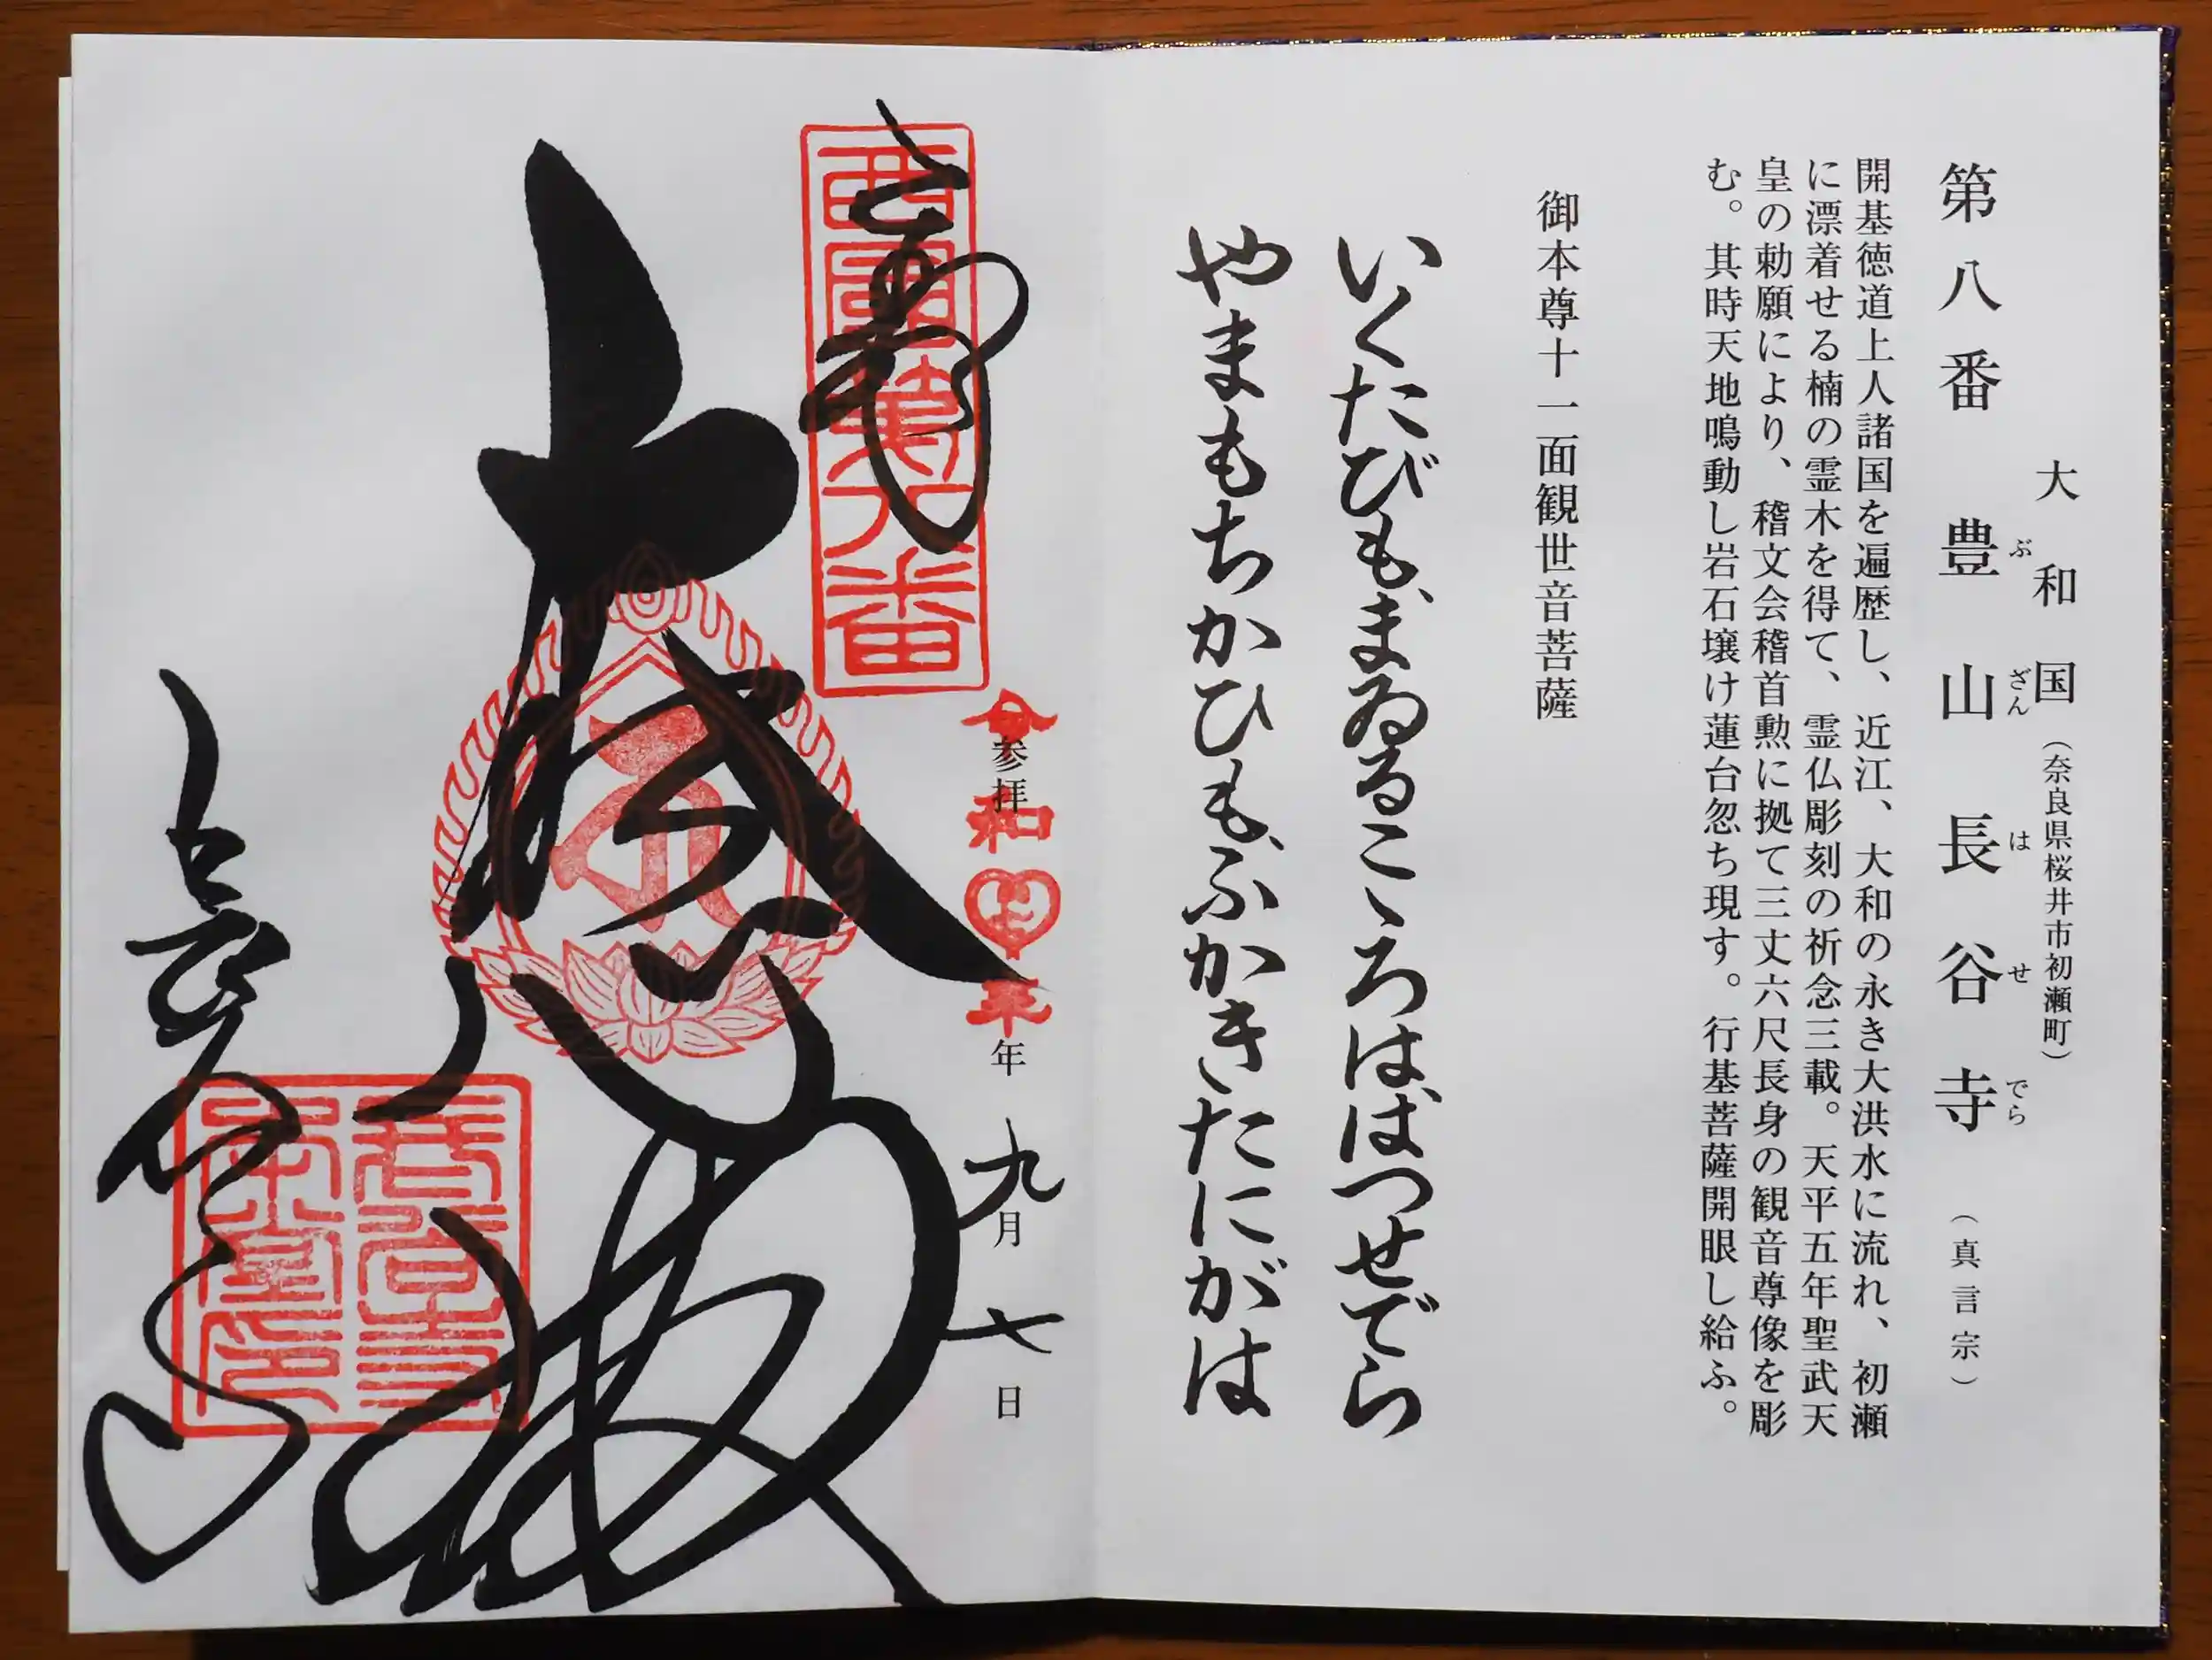 大和国（奈良県桜井市初瀬町）
第八番 豊山 長谷寺（真言宗）
ぶ ざん は せ でら
開基徳道上人諸国を遍歴し、近江、大和の永き大洪水に流れ、初瀬
に漂着せる楠の霊木を得て、霊仏彫刻の祈念三載。天平五年聖武天
皇の勅願により、稽文会稽首勲に拠て三丈六尺長身の観音尊像を彫
む。其時天地鳴動し岩石壌け蓮台忽ち現す。行基菩薩開眼し給ふ。
御本尊十一面観世音菩薩
いくたびも、まゐるこゝろは、はつせでら
やまもちかひも、ふかきたにがは
参拝
令和四年
年 九月 七日
西國第八番
大悲閣
長谷寺本堂印